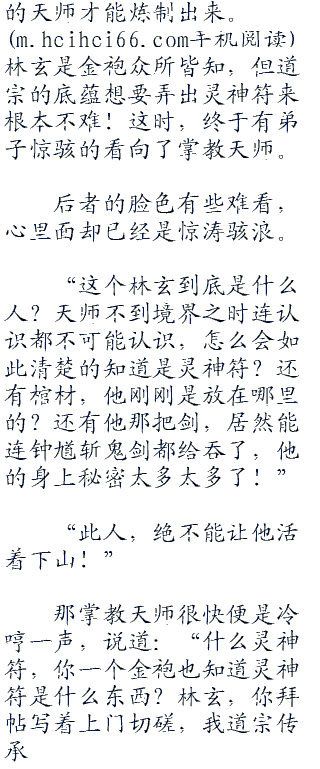 的天师才能炼制出来。
(m.hcihci66.com手机阅读)
林玄是金袍众所皆知，但道
宗的底蕴想要弄出灵神符来
根本不难！这时，终于有弟
子惊骇的看向了掌教天师。
后者的脸色有些难看，
心里面却已经是惊涛骇浪。
“这个林玄到底是什么
人？天师不到境界之时连认
识都不可能认识，怎么会如
此清楚的知道是灵神符？还
有棺材，他刚刚是放在哪里
的？还有他那把剑，居然能
连钟馗斩鬼剑都给吞了，他
的身上秘密太多太多了！”
“此人，绝不能让他活
着下山！”
那掌教天师很快便是冷
哼一声，说道：“什么灵神
符，你一个金袍也知道灵神
符是什么东西？林玄，你拜
帖写着上门切磋，我道宗传
承